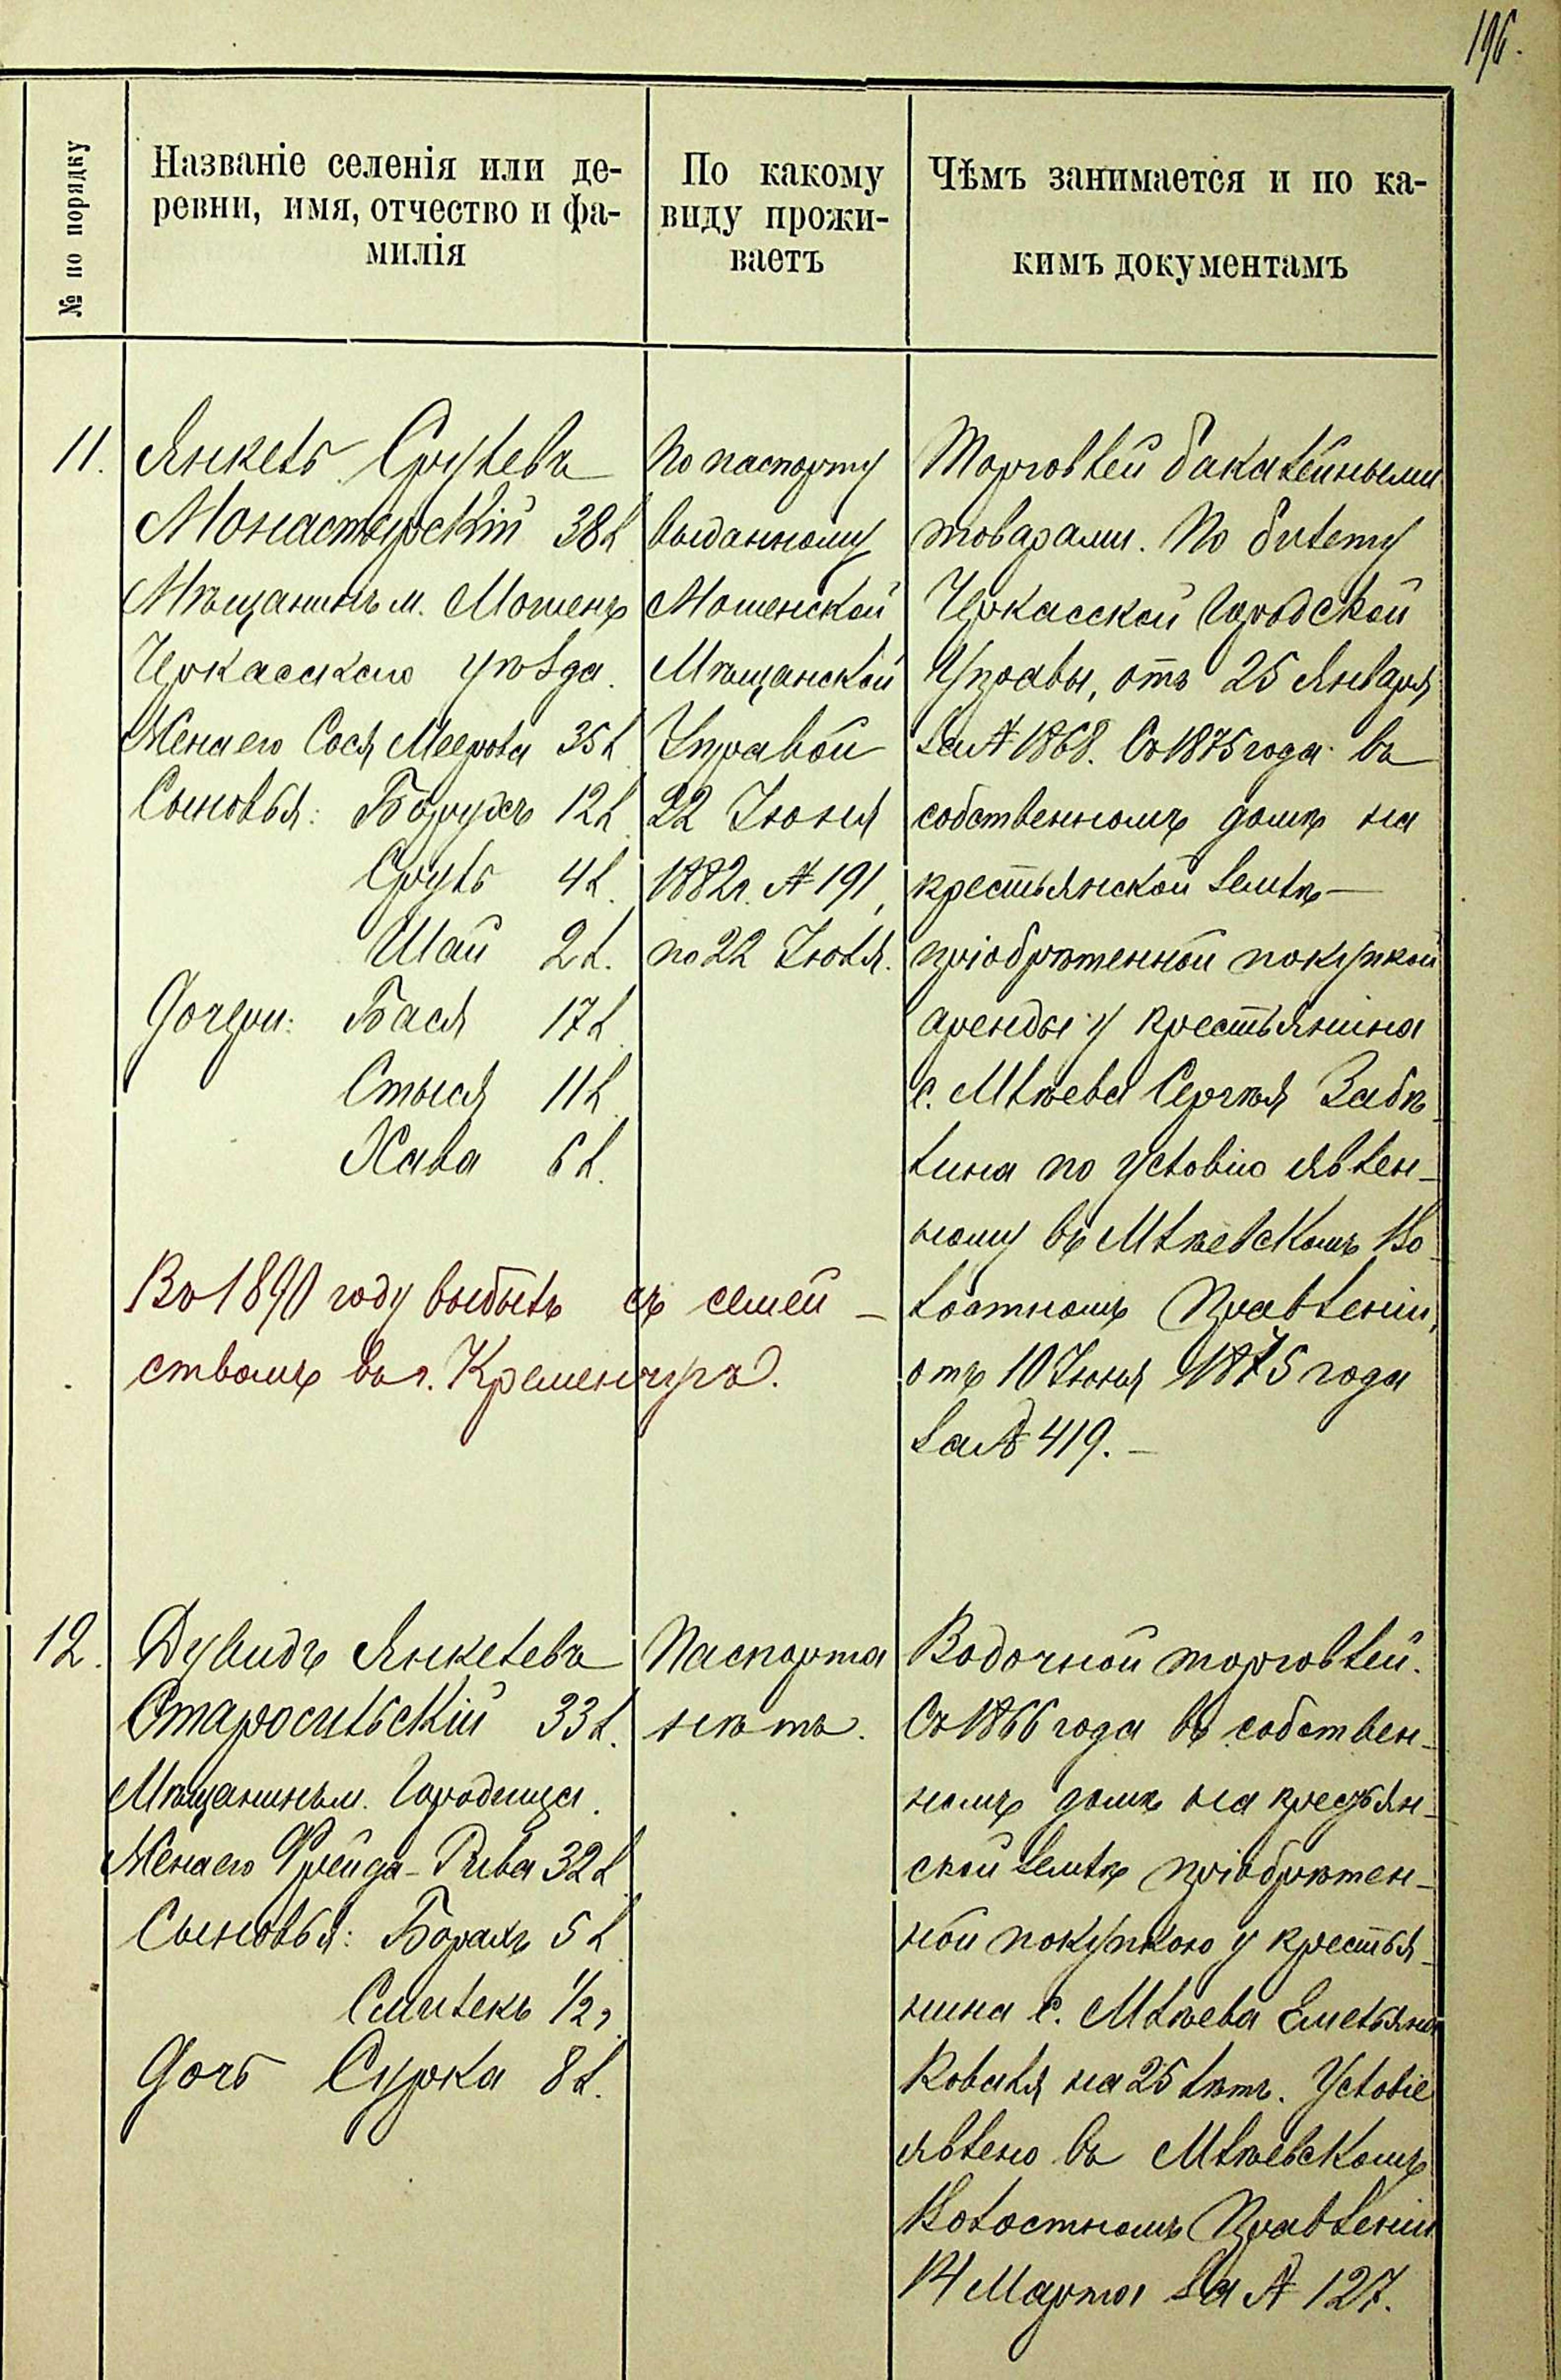 196.
№ по порядку
Названіе селенія или де-
ревни, имя, отчество и фа-
милія
По какому
виду прожи-
ваетъ
Чѣмъ занимается и по ка-
кимъ документамъ
11.
Янкель Срулевъ
Монастырскій 38 л.
Мѣщанинъ м. Мошенъ
Черкасскаго уѣзда.
Жена его Сося Меерова 35 л.
Сыновья: Борухъ 12 л.
Сруль 4 л.
Шая 2 л.
Дочери: Бася 17 л.
Стыся 11 л.
Хава 6 л.
Въ 1890 году выбылъ съ семей-
ствомъ въ г. Кременчугъ.
По паспорту
выданному
Мошенской
Мѣщанской
Управой
22 Іюня
1882 г. № 191,
по 22 Іюля.
Торговлей бакалейными
товарами. По билету
Черкасской Городской
Управы, отъ 25 Января
за № 1868. Съ 1875 года въ
собственномъ домѣ на
крестьянской землѣ —
пріобрѣтенной покупкой
аренды у крестьянина
с. Млѣева Сергѣя Забѣ-
лина по условію явлен-
ному въ Млѣевскомъ Во-
лостномъ Правленіи,
отъ 10 Іюня 1875 года
за № 419. —
12.
Дувидъ Янкелевъ
Старосельскій 33 л.
Мѣщанинъ м. Городища.
Жена его Фрейда-Рива 32 л.
Сыновья: Борахъ 5 л.
Смилекъ 1/2 г.
Дочь Сурка 8 л.
Паспорта
нѣтъ.
Водочной торговлей.
Съ 1866 года въ собствен-
номъ домѣ на крестьян-
ской землѣ пріобрѣтен-
ной покупкою у крестья-
нина с. Млѣева Емельяна
Коваля на 25 лѣтъ. Условіе
явлено въ Млѣевскомъ
Волостномъ Правленіи
14 Марта за № 127.